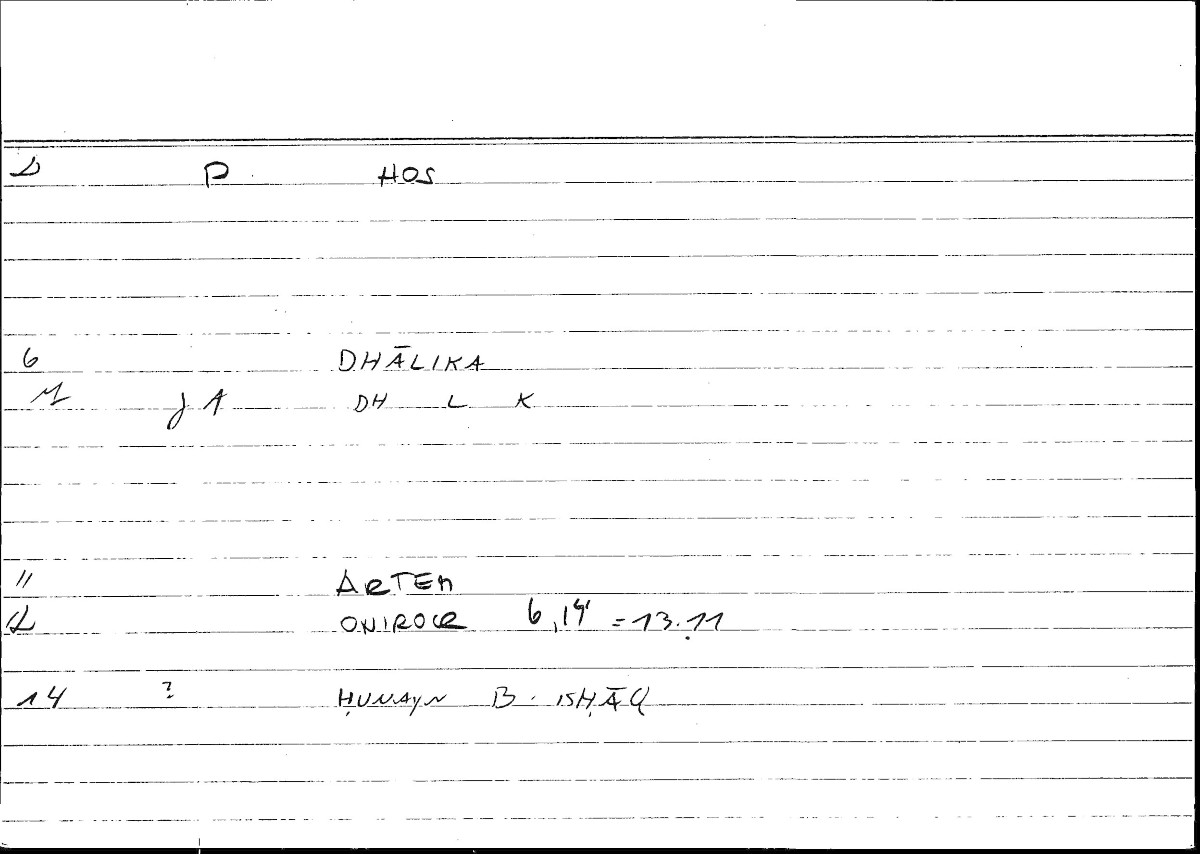 D P HOS
6 DHĀLIKA
M J A DH L K
11 ARTEM
D ONIROCR 6,14 = 13.11
14 ? ḤUNAYN B. ISḤĀQ